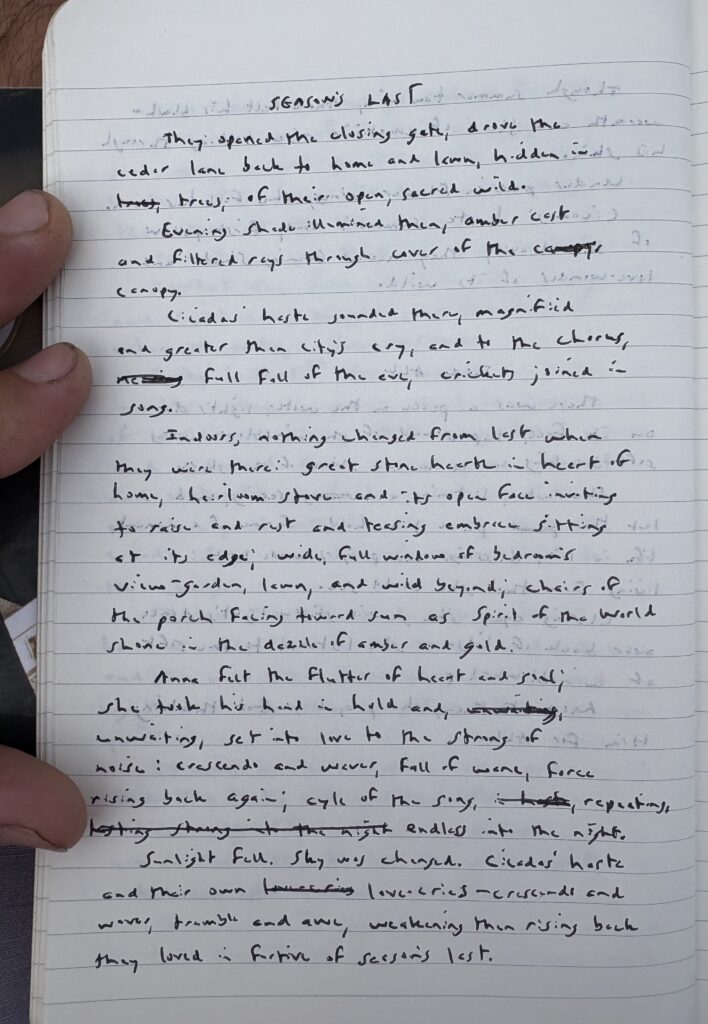 SEASON'S LAST
They opened the closing gate, drove the
ceder lane back to home and lawn, hidden in
trees, trees, of their open, sacred wild.
Evening shade illumined them, amber cast
and filtered rays through cover of the canopy
canopy.
Cicadas' haste sounded there, magnified
and greater than city's cry, and to the chorus,
full fall of the eve, crickets joined in
song.
Indoors, nothing changed from last when
they were there: great stone hearth in heart of
home, heirloom stove and its open face inviting
to raise and rest and teasing embrace sitting
at its edge; wide, full window of bedroom's
view-garden, lawn, and wild beyond; chairs of
the porch facing toward sun as Spirit of the World
shone in the dazzle of amber and gold.
Anna felt the flutter of heart and soul;
she took his hand in hold and, unwaiting,
unwaiting, set into love to the strong of
noise: crescendo and waver, fall of wane, force
rising back again; cycle of the song, repeating,
lasting strong into the night endless into the night.
Sunlight fell. Sky was changed. Cicadas' haste
and their own love-cries-crescendo and
waver, tremble and awe, weakening then rising back
they loved in furtive of season's last.